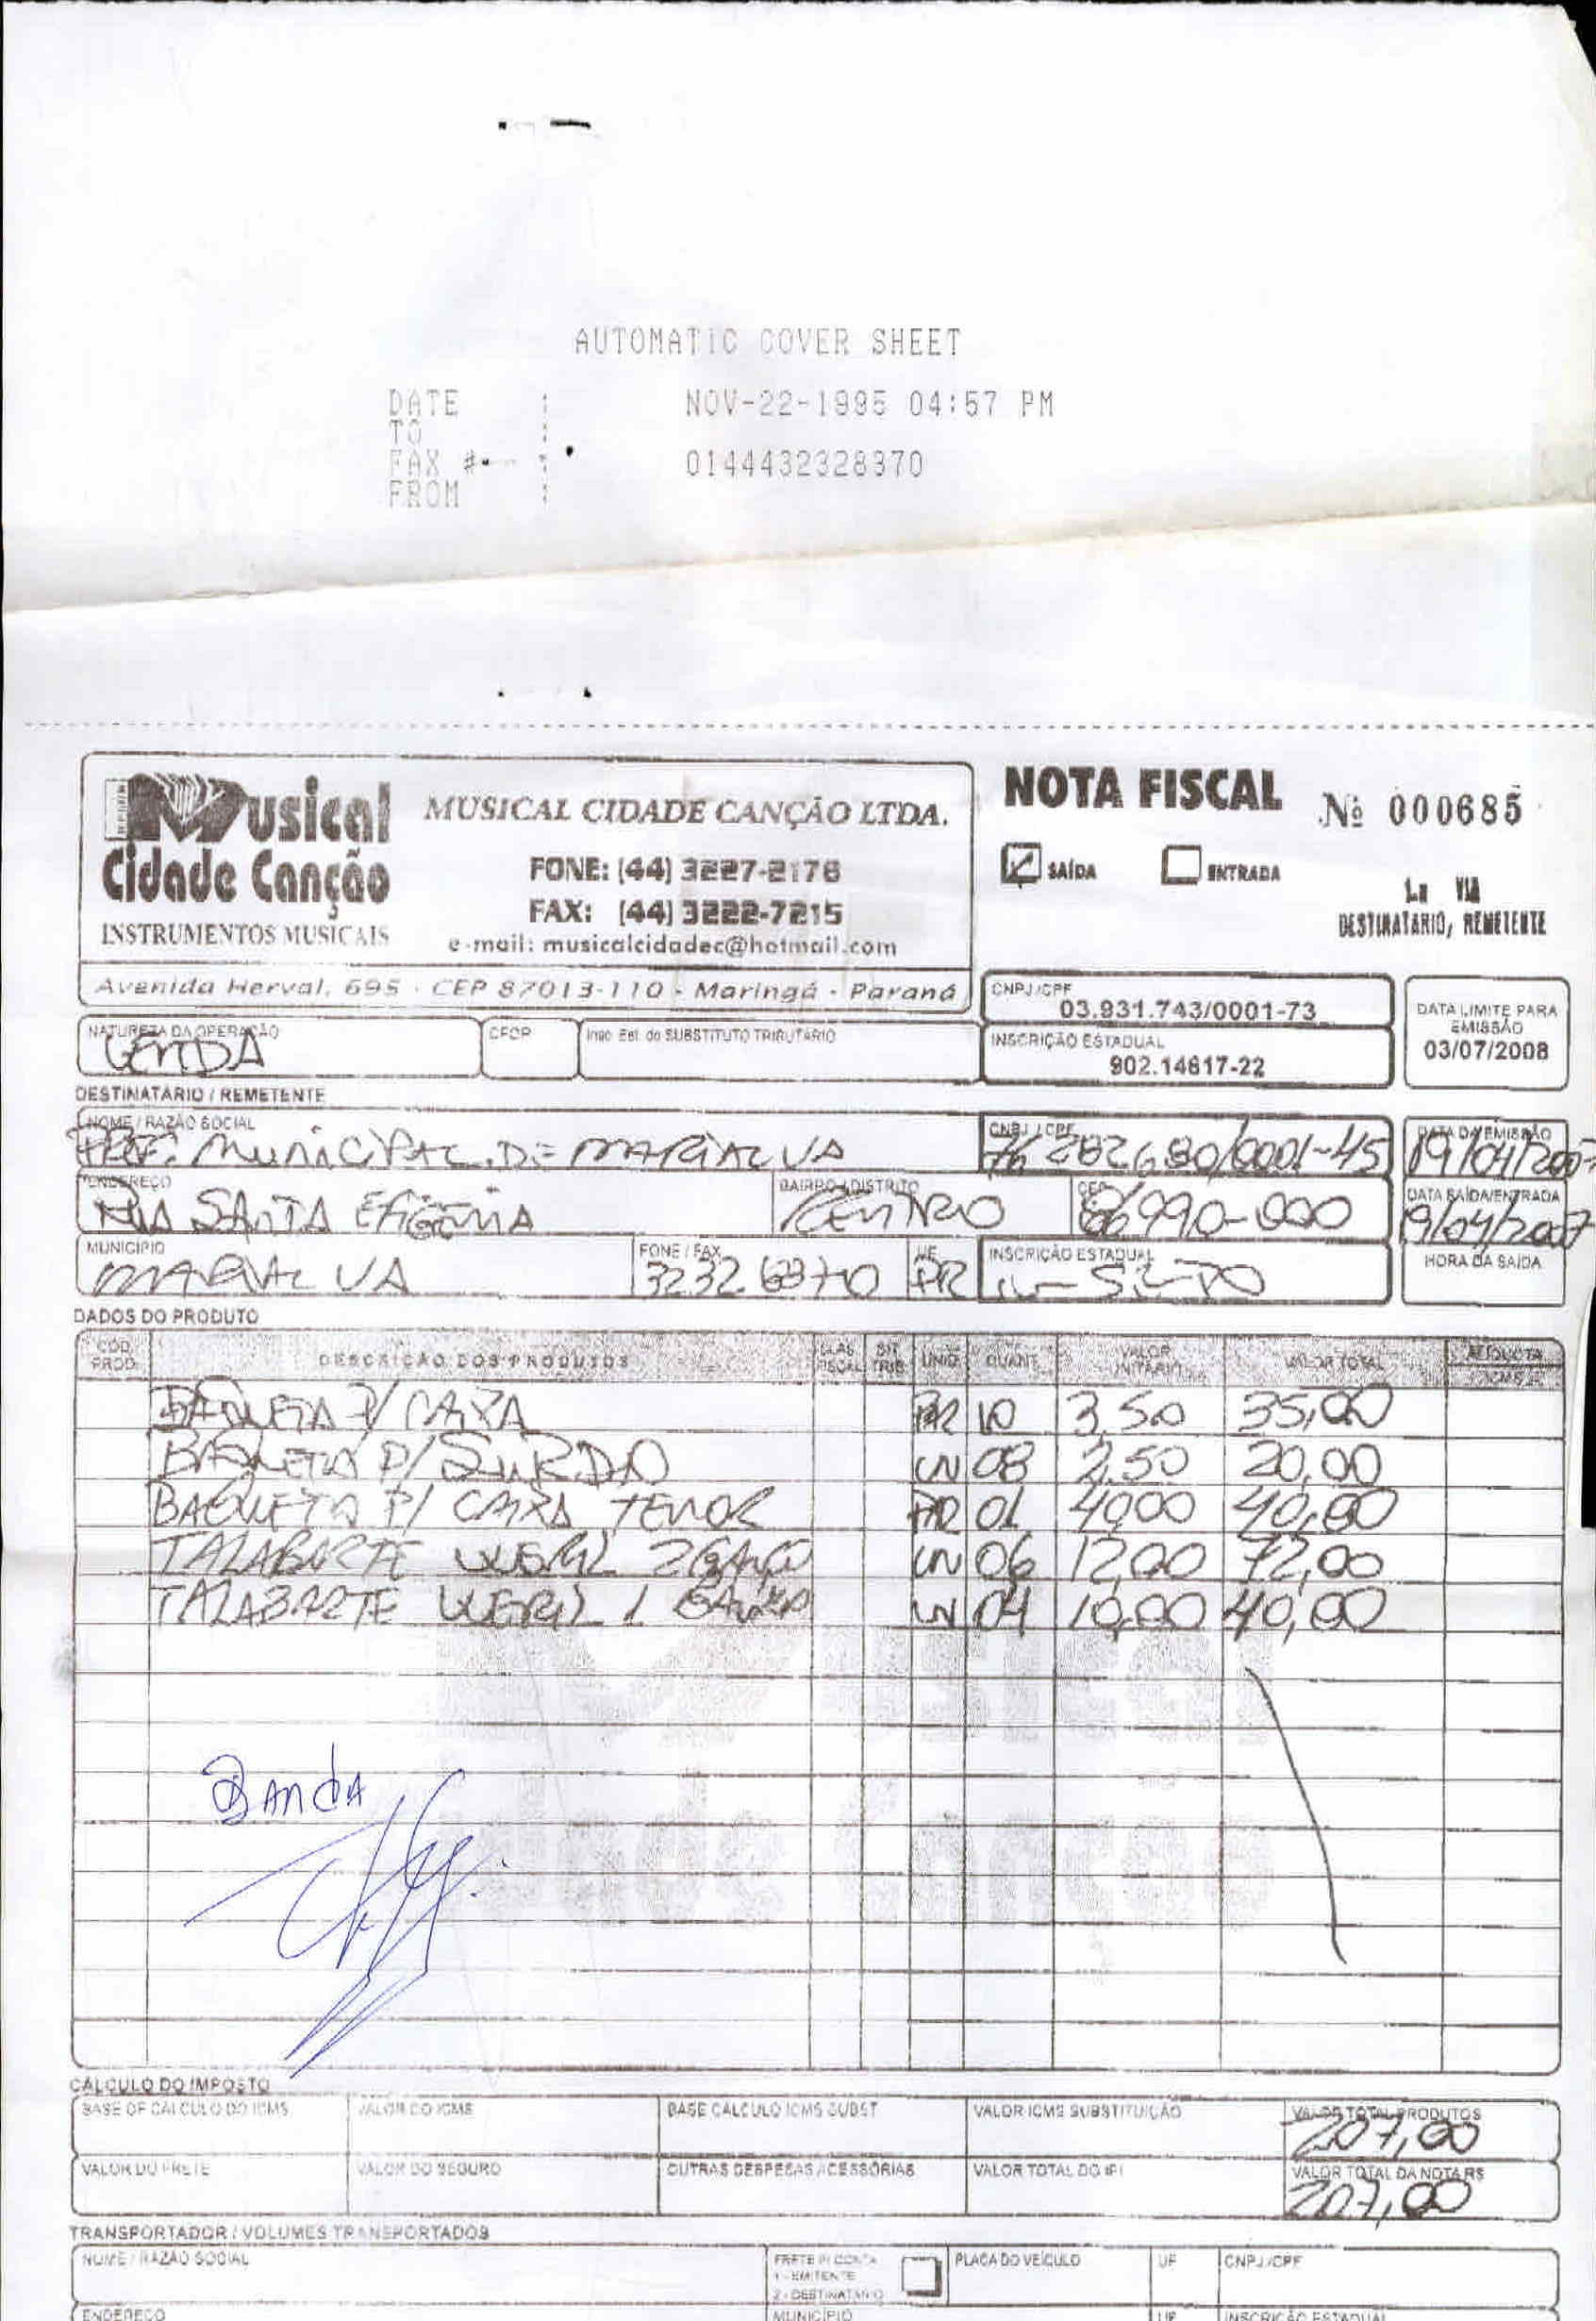 AUTOMATIC COVER SHEET
DATE : NOV-22-1995 04:57 PM
TO :
FAX # : 0144432328370
FROM :
Musical Cidade Canção
INSTRUMENTOS MUSICAIS
MUSICAL CIDADE CANÇÃO LTDA.
FONE: (44) 3227-2176
FAX: (44) 3222-7215
e-mail: musicalcidadec@hotmail.com
Avenida Herval, 695 - CEP 87013-110 - Maringá - Paraná
NOTA FISCAL Nº 000685
SAÍDA ENTRADA
1a VIA
DESTINATARIO, REMETENTE
CNPJ/CPF
03.931.743/0001-73
DATA LIMITE PARA EMISSÃO
03/07/2008
NATUREZA DA OPERAÇÃO CFOP Insc. Est. do SUBSTITUTO TRIBUTÁRIO
VENDA
INSCRIÇÃO ESTADUAL
902.14617-22
DESTINATÁRIO / REMETENTE
NOME / RAZÃO SOCIAL CNPJ / CPF DATA DA EMISSÃO
PREF. MUNICIPAL DE MARIALVA 76 282 680/0001-45 19/04/2007
ENDEREÇO BAIRRO / DISTRITO CEP DATA SAÍDA/ENTRADA
RUA SANTA EFIGÊNIA CENTRO 86990-000 19/04/2007
MUNICÍPIO FONE / FAX UF INSCRIÇÃO ESTADUAL HORA DA SAÍDA
MARIALVA PR
DADOS DO PRODUTO
CÓD. PROD. DESCRIÇÃO DOS PRODUTOS CLAS. FISCAL SIT. TRIB. UNID. QUANT. VALOR UNITÁRIO VALOR TOTAL ALÍQUOTA ICMS
BAQUETA P/ CAIXA PR 10 3,50 35,00
BAQUETA P/ SURDO UN 08 2,50 20,00
BAQUETA P/ CAIXA TENOR PR 01 40,00 40,00
TALABARTE WERIL 2 GANCHO UN 06 12,00 72,00
TALABARTE WERIL 1 GANCHO UN 04 10,00 40,00
BANdA
CÁLCULO DO IMPOSTO
BASE DE CÁLCULO DO ICMS VALOR DO ICMS BASE CÁLCULO ICMS SUBST VALOR ICMS SUBSTITUIÇÃO VALOR TOTAL PRODUTOS
207,00
VALOR DO FRETE VALOR DO SEGURO OUTRAS DESPESAS ACESSÓRIAS VALOR TOTAL DO IPI VALOR TOTAL DA NOTA R$
207,00
TRANSPORTADOR / VOLUMES TRANSPORTADOS
NOME / RAZÃO SOCIAL FRETE P/ CONTA PLACA DO VEÍCULO UF CNPJ/CPF
1 - EMITENTE
2 - DESTINATÁRIO
ENDEREÇO MUNICÍPIO UF INSCRIÇÃO ESTADUAL